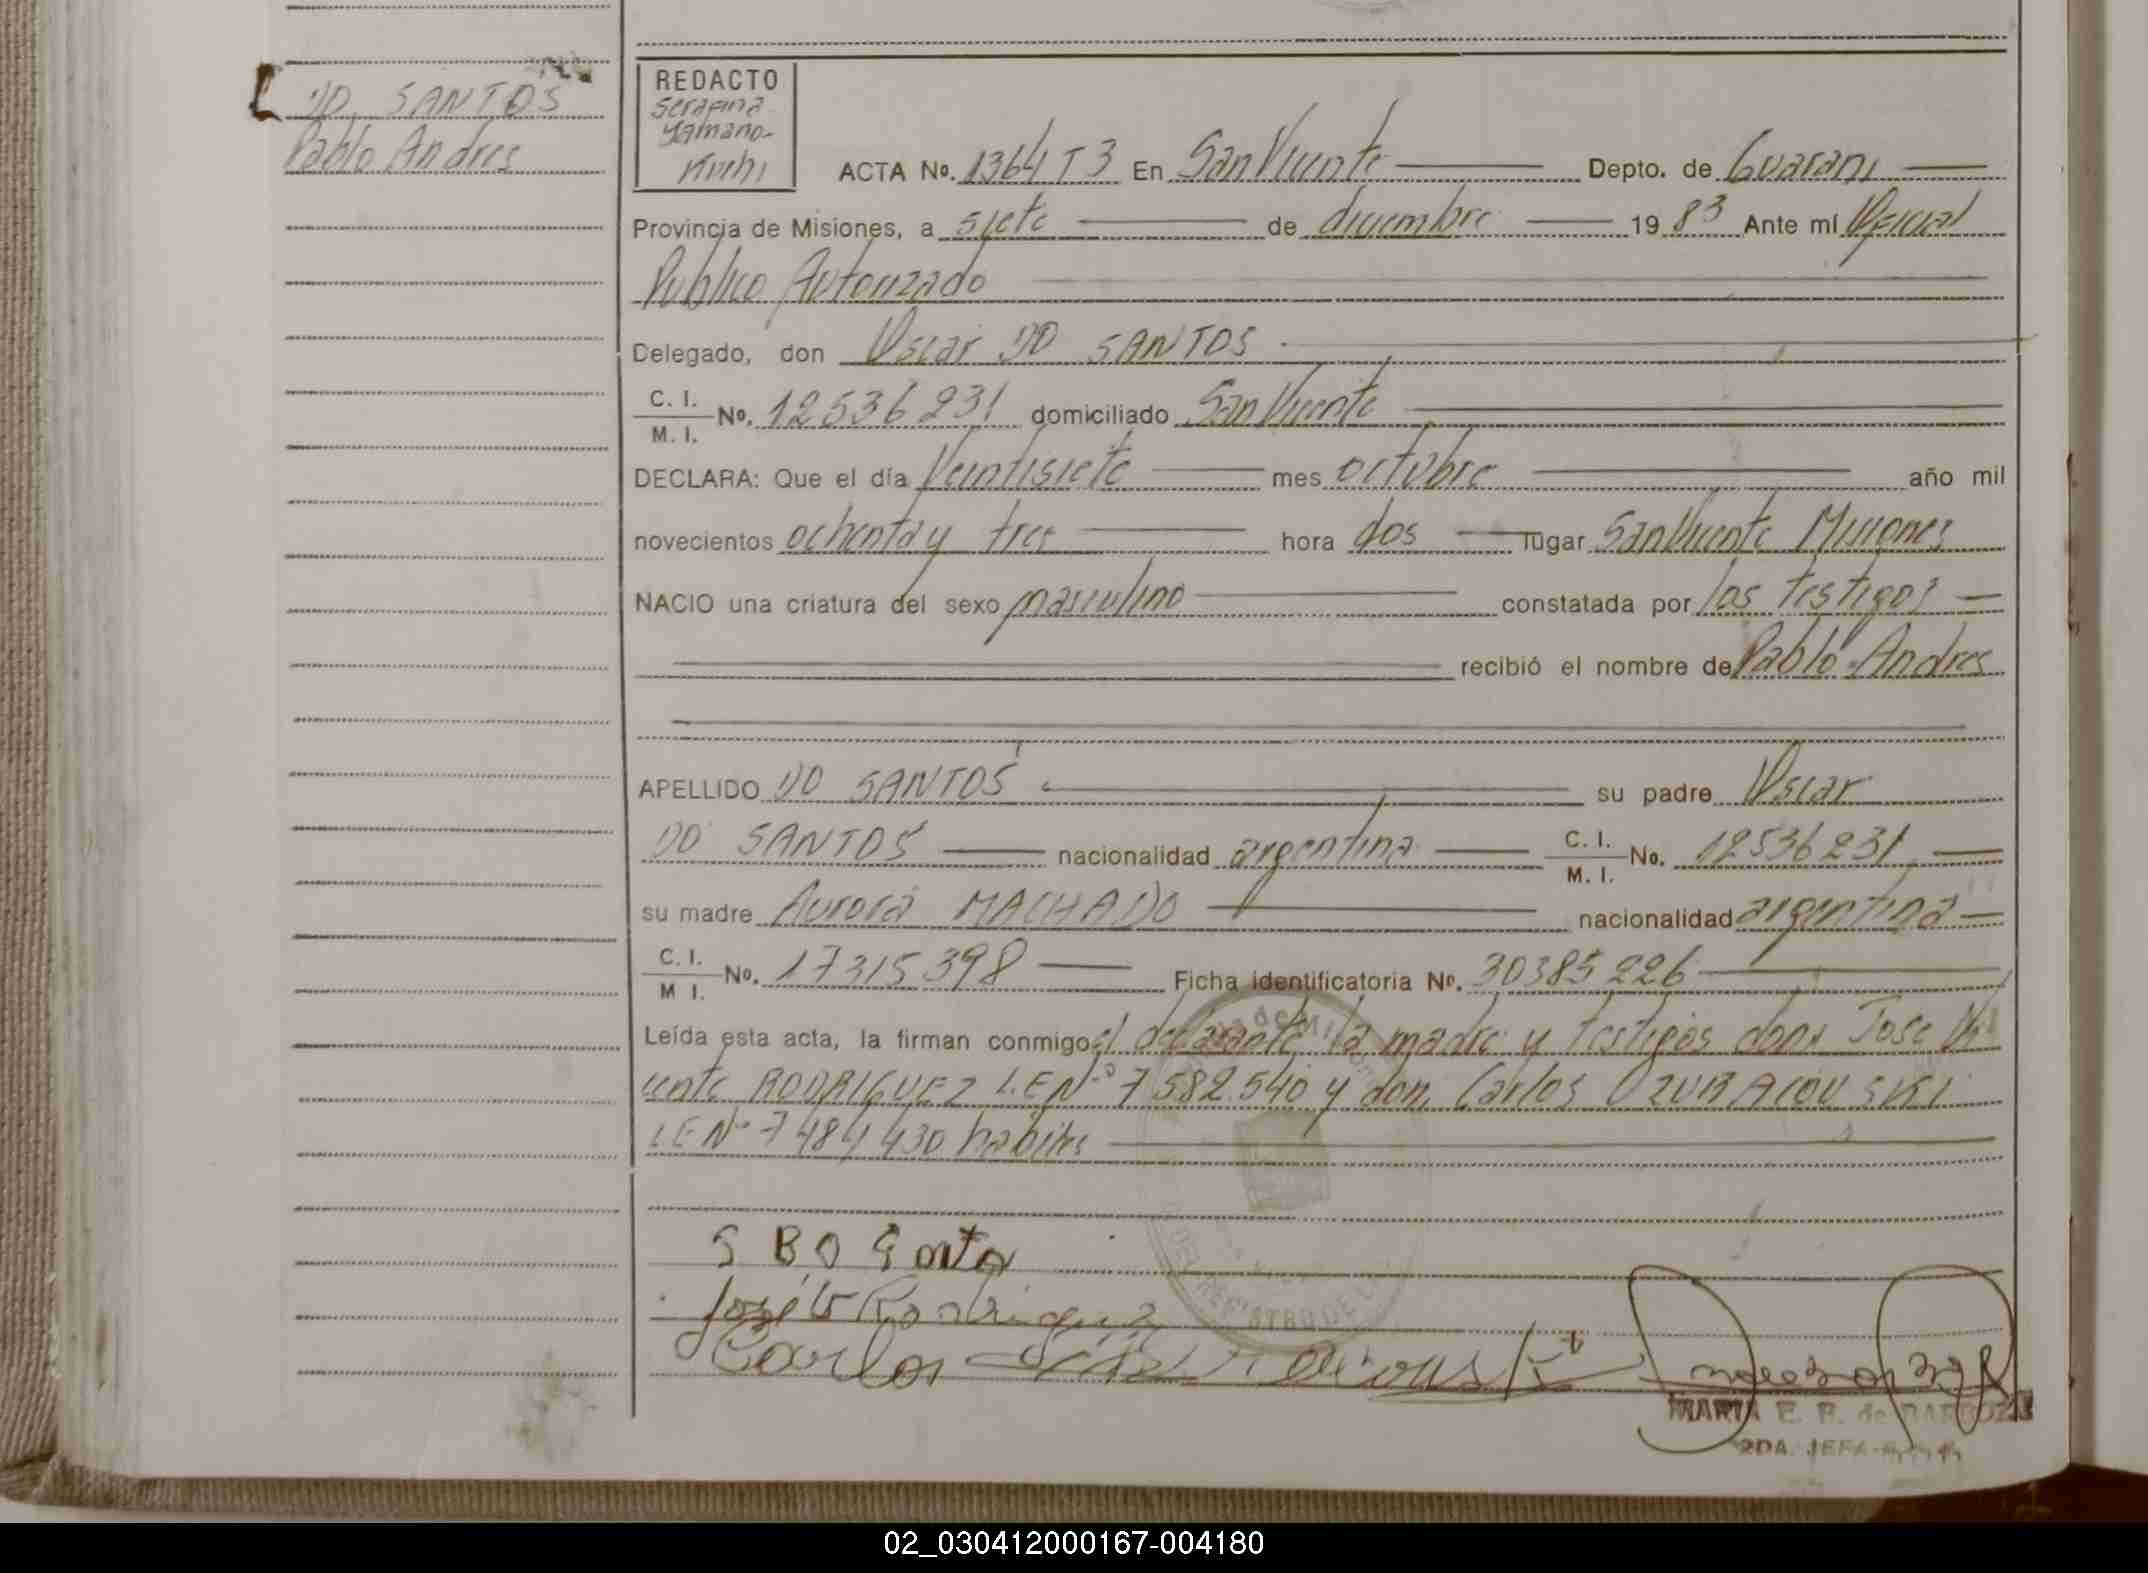 DO SANTOS
Pablo Andres
REDACTO
Serafina
Yamano-
Kuchi
ACTA No. 1364 T 3 En San Vicente Depto. de Guarani
Provincia de Misiones, a siete de diciembre 19 83 Ante mí Oficial
Publico Autorizado
Delegado, don Oscar DO SANTOS
C. I.
M. I. No. 12536231 domiciliado San Vicente
DECLARA: Que el día Veintisiete mes octubre año mil
novecientos ochenta y tres hora dos lugar San Vicente Misiones
NACIO una criatura del sexo masculino constatada por los testigos
recibió el nombre de Pablo Andres
APELLIDO DO SANTOS su padre Oscar
DO SANTOS nacionalidad argentina C. I. M. I. No. 12536231
su madre Aurora MACHADO nacionalidad argentina
C. I.
M I. No. 17315398 Ficha identificatoria No. 30385226
Leída esta acta, la firman conmigo el declarante la madre y testigos dons Jose Vi
cente RODRIGUEZ L.E Nº 7 582.540 y don Carlos
LE Nº 7 484 430 habiles
José V Rodriguez
Carlos
MARIA E. B. de BARBOZA
2DA. JEFA
REGISTRO DE
02_030412000167-004180